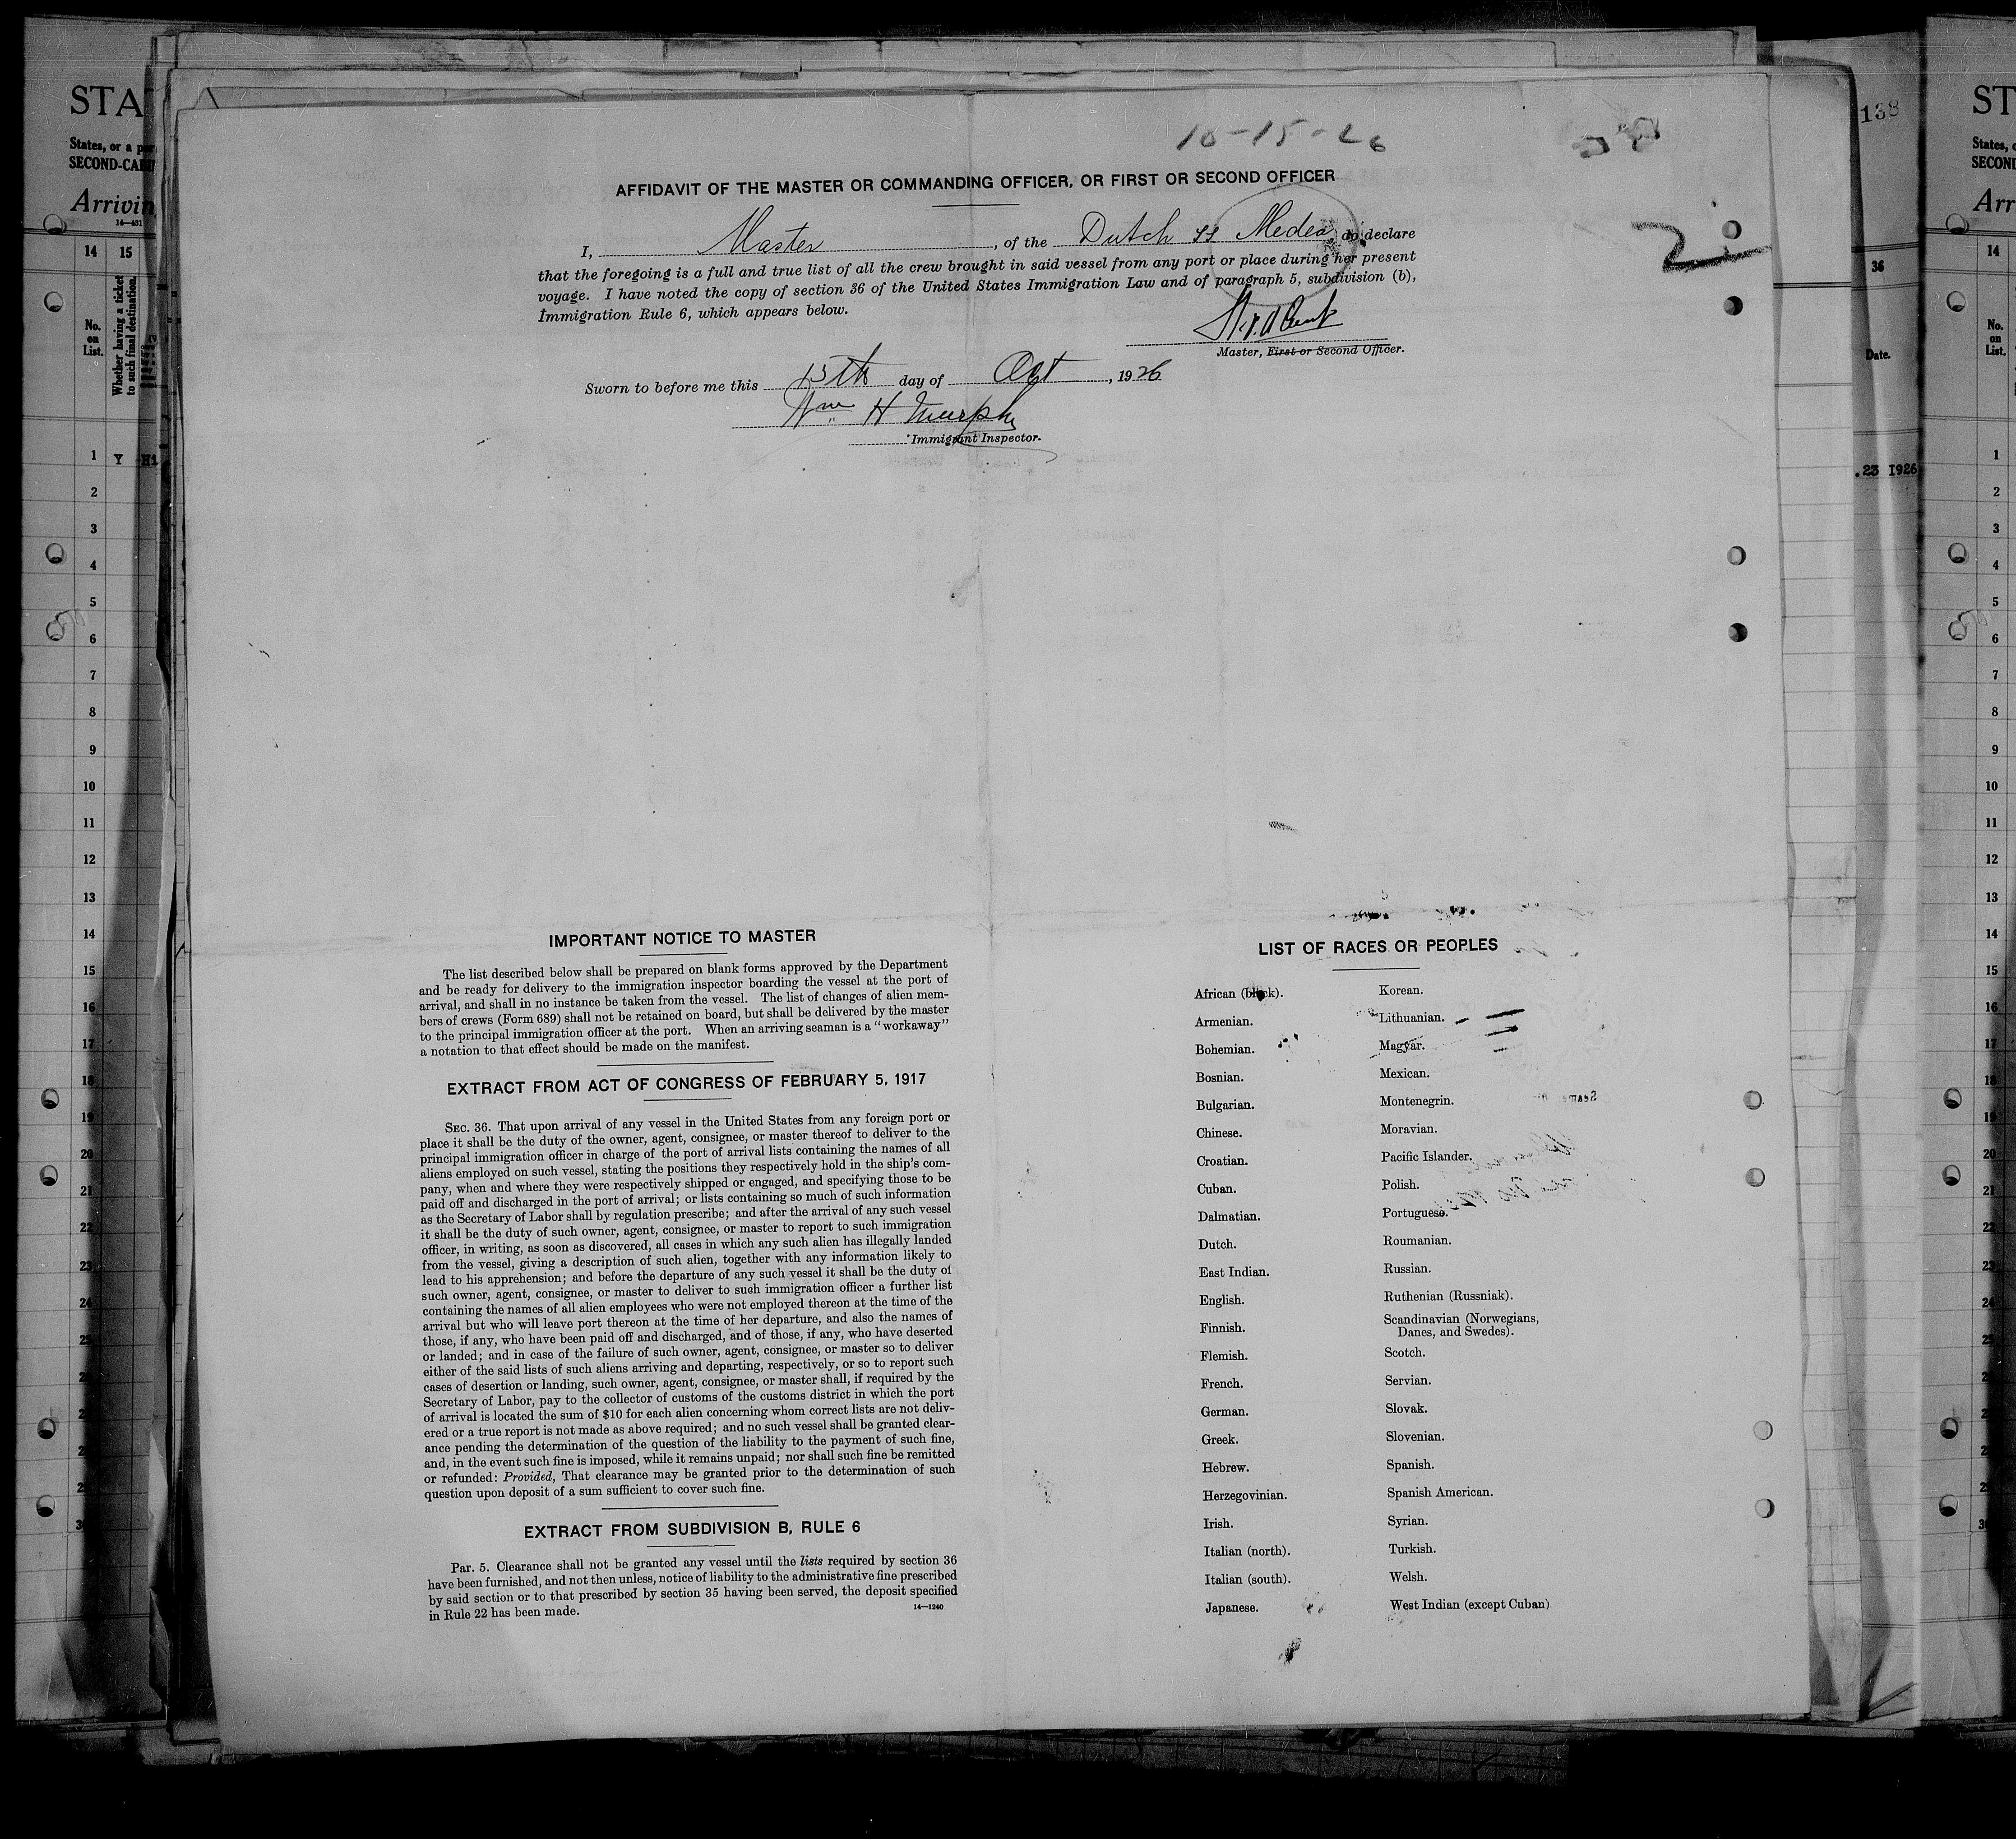 10-15-26
AFFIDAVIT OF THE MASTER OR COMMANDING OFFICER, OR FIRST OR SECOND OFFICER
I, Master, of the Dutch ss Medea, do declare
that the foregoing is a full and true list of all the crew brought in said vessel from any port or place during her present
voyage. I have noted the copy of section 36 of the United States Immigration Law and of paragraph 5, subdivision (b),
Immigration Rule 6, which appears below.
Master, First or Second Officer.
Sworn to before me this 15th day of Oct, 1926
Wm H Murphy
Immigrant Inspector.
2
IMPORTANT NOTICE TO MASTER
The list described below shall be prepared on blank forms approved by the Department
and be ready for delivery to the immigration inspector boarding the vessel at the port of
arrival, and shall in no instance be taken from the vessel. The list of changes of alien mem-
bers of crews (Form 689) shall not be retained on board, but shall be delivered by the master
to the principal immigration officer at the port. When an arriving seaman is a "workaway"
a notation to that effect should be made on the manifest.
EXTRACT FROM ACT OF CONGRESS OF FEBRUARY 5, 1917
SEC. 36. That upon arrival of any vessel in the United States from any foreign port or
place it shall be the duty of the owner, agent, consignee, or master thereof to deliver to the
principal immigration officer in charge of the port of arrival lists containing the names of all
aliens employed on such vessel, stating the positions they respectively hold in the ship's com-
pany, when and where they were respectively shipped or engaged, and specifying those to be
paid off and discharged in the port of arrival; or lists containing so much of such information
as the Secretary of Labor shall by regulation prescribe; and after the arrival of any such vessel
it shall be the duty of such owner, agent, consignee, or master to report to such immigration
officer, in writing, as soon as discovered, all cases in which any such alien has illegally landed
from the vessel, giving a description of such alien, together with any information likely to
lead to his apprehension; and before the departure of any such vessel it shall be the duty of
such owner, agent, consignee, or master to deliver to such immigration officer a further list
containing the names of all alien employees who were not employed thereon at the time of the
arrival but who will leave port thereon at the time of her departure, and also the names of
those, if any, who have been paid off and discharged, and of those, if any, who have deserted
or landed; and in case of the failure of such owner, agent, consignee, or master so to deliver
either of the said lists of such aliens arriving and departing, respectively, or so to report such
cases of desertion or landing, such owner, agent, consignee, or master shall, if required by the
Secretary of Labor, pay to the collector of customs of the customs district in which the port
of arrival is located the sum of $10 for each alien concerning whom correct lists are not deliv-
ered or a true report is not made as above required; and no such vessel shall be granted clear-
ance pending the determination of the question of the liability to the payment of such fine,
and, in the event such fine is imposed, while it remains unpaid; nor shall such fine be remitted
or refunded: Provided, That clearance may be granted prior to the determination of such
question upon deposit of a sum sufficient to cover such fine.
EXTRACT FROM SUBDIVISION B, RULE 6
Par. 5. Clearance shall not be granted any vessel until the lists required by section 36
have been furnished, and not then unless, notice of liability to the administrative fine prescribed
by said section or to that prescribed by section 35 having been served, the deposit specified
in Rule 22 has been made.
14—1240
LIST OF RACES OR PEOPLES
African (black).
Armenian.
Bohemian.
Bosnian.
Bulgarian.
Chinese.
Croatian.
Cuban.
Dalmatian.
Dutch.
East Indian.
English.
Finnish.
Flemish.
French.
German.
Greek.
Hebrew.
Herzegovinian.
Irish.
Italian (north).
Italian (south).
Japanese.
Korean.
Lithuanian.
Magyar.
Mexican.
Montenegrin.
Moravian.
Pacific Islander.
Polish.
Portuguese.
Roumanian.
Russian.
Ruthenian (Russniak).
Scandinavian (Norwegians,
Danes, and Swedes).
Scotch.
Servian.
Slovak.
Slovenian.
Spanish.
Spanish American.
Syrian.
Turkish.
Welsh.
West Indian (except Cuban)
STA
States, or a
SECOND-CAB
Arrivin
14 15
No.
on
List.
Whether having a ticket
to such final destination.
1 Y
2
3
4
5
6
7
8
9
10
11
12
13
14
15
16
17
18
19
20
21
22
23
24
138
36
Date.
23 1926
ST
States,
SECOND
Arr
14
No.
on
List.
1
2
3
4
5
6
7
8
9
10
11
12
13
14
15
16
17
18
19
20
21
22
23
24